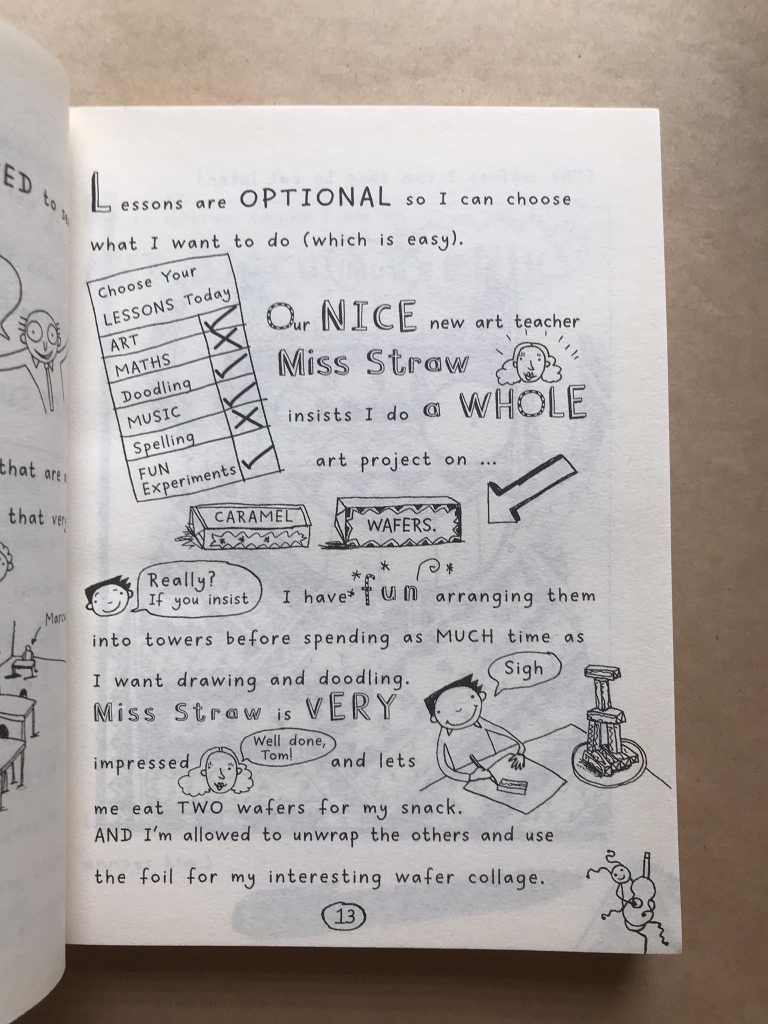 ED to
that are
that very
Marc
Lessons are OPTIONAL so I can choose
what I want to do (which is easy).
Choose Your
LESSONS Today
ART
MATHS
Doodling
MUSIC
Spelling
FUN
Experiments
Our NICE new art teacher
Miss Straw
insists I do a WHOLE
art project on ...
CARAMEL
WAFERS.
Really?
If you insist
I have fun arranging them
into towers before spending as MUCH time as
I want drawing and doodling.
Sigh
Miss Straw is VERY
impressed
Well done,
Tom!
and lets
me eat TWO wafers for my snack.
AND I'm allowed to unwrap the others and use
the foil for my interesting wafer collage.
13